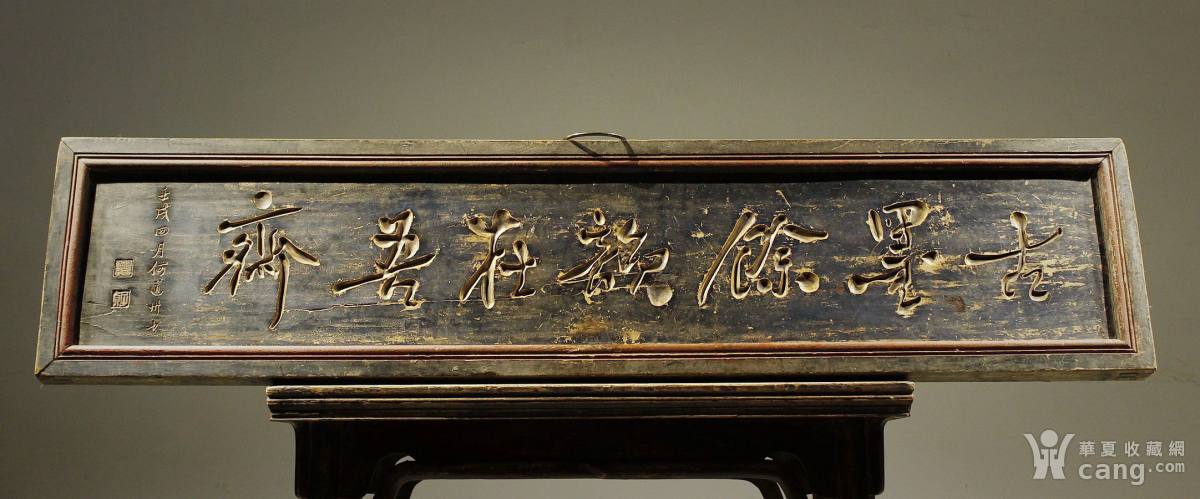 古墨餘韻在吾齋
壬戌四月何道州書
華夏收藏網
cang.com